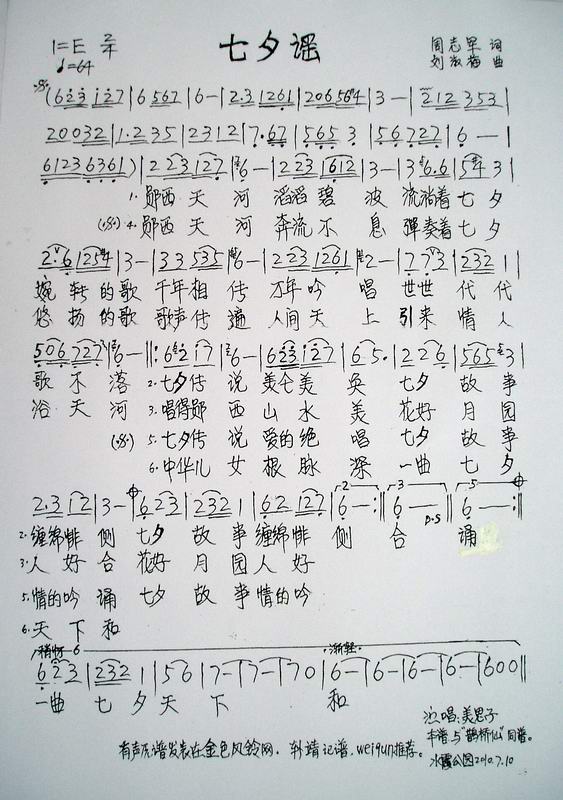 七夕谣
1=E 2/4
♩=64
周志军 词
刘淑梅 曲
(623 127 | 6 567 | 6 — | 2.3 1261 | 206 564 | 3 — | 212 353 |
20032 | 1.235 | 2312 | 7.67 | 565 3 | 56727 | 6 — |
6123 6361) | 2 23 127 | 6 — | 223 1612 | 3 — | 3 6.6 | 54 3 |
1. 郧西 天 河 滔滔 碧 波 流淌着 七 夕
4. 郧西 天 河 奔流 不 息 弹奏着 七 夕
2.6 1254 | 3 — | 33 535 | 6 — | 223 1261 | 2 — | 773 | 232 1 |
婉 转 的歌 千年相 传 万年吟 唱 世世 代 代
悠 扬 的歌 歌声传 遍 人间天 上 引来 情 人
506 727 | 6 — ‖: 62 17 | 6 — | 623 127 | 65. | 226 | 565 3 |
歌 不 落 2. 七夕传 说 美仑美 奂 七夕 故 事
浴 天 河 3. 唱得郧 西 山 水 美 花好 月 园
5. 七夕传 说 爱的绝 唱 七夕 故 事
6. 中华儿 女 根 脉 深 一曲 七 夕
2.3 12 | 3 — | 623 | 232 1 | 62 127 | 6 — :‖ 6 — ‖ 6 — :‖
2 3 5 D.S
2. 缠绵悱 侧 七夕 故 事 缠绵悱 侧 合 诵
3. 人 好 合 花好 月 园 人 好
5. 情的吟 诵 七夕 故 事 情的吟
6. 天 下 和
稍慢 6 渐轻
623 | 232 1 | 56 | 7 — | 7 — | 70 | 6 — | 6 — | 6 — | 6 — | 600 ‖
一曲 七 夕 天 下 和
演唱:美思子
本谱与"鹊桥仙"同谱。
有声歌谱发表在金色风铃网. 轩靖记谱. weiqun推荐。
水霞公园2010.7.10